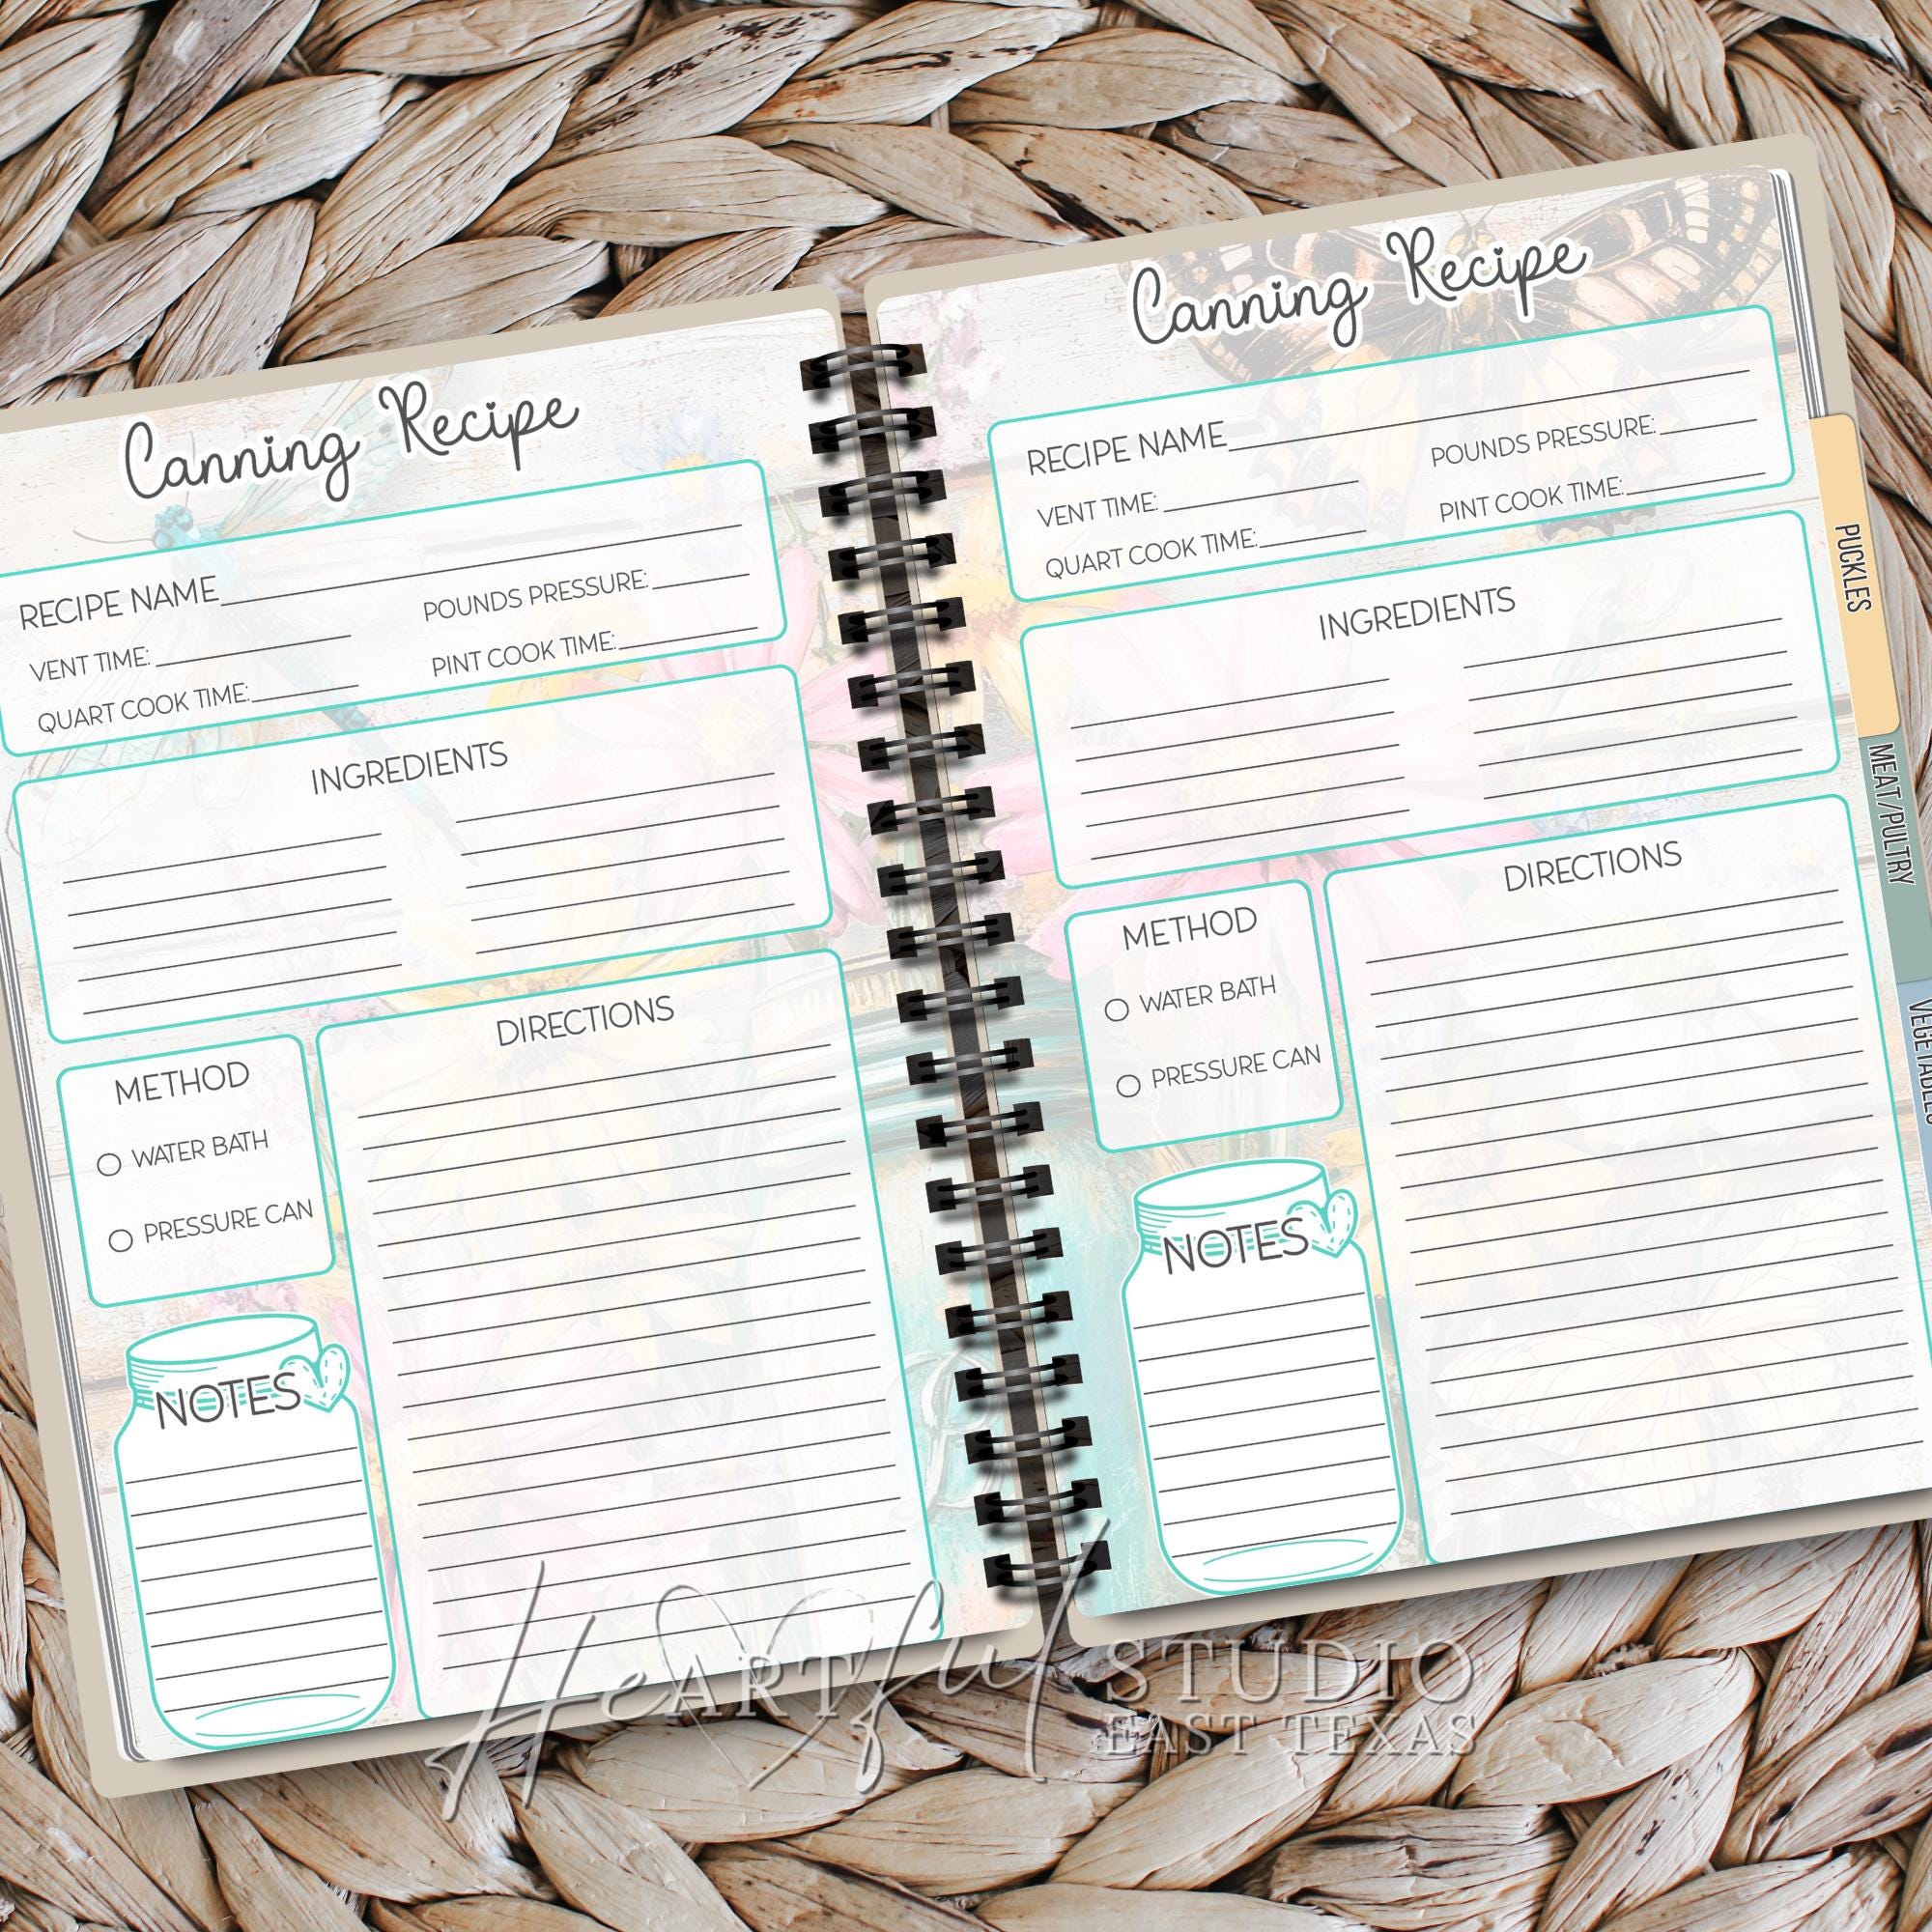 Canning Recipe
RECIPE NAME
POUNDS PRESSURE:
VENT TIME:
PINT COOK TIME:
QUART COOK TIME:
INGREDIENTS
METHOD
WATER BATH
PRESSURE CAN
DIRECTIONS
NOTES
Canning Recipe
RECIPE NAME
POUNDS PRESSURE:
VENT TIME:
PINT COOK TIME:
QUART COOK TIME:
INGREDIENTS
METHOD
WATER BATH
PRESSURE CAN
DIRECTIONS
NOTES
PUCKLES
MEAT/PULTRY
VEGETABLES
HeARTful STUDIO
EAST TEXAS